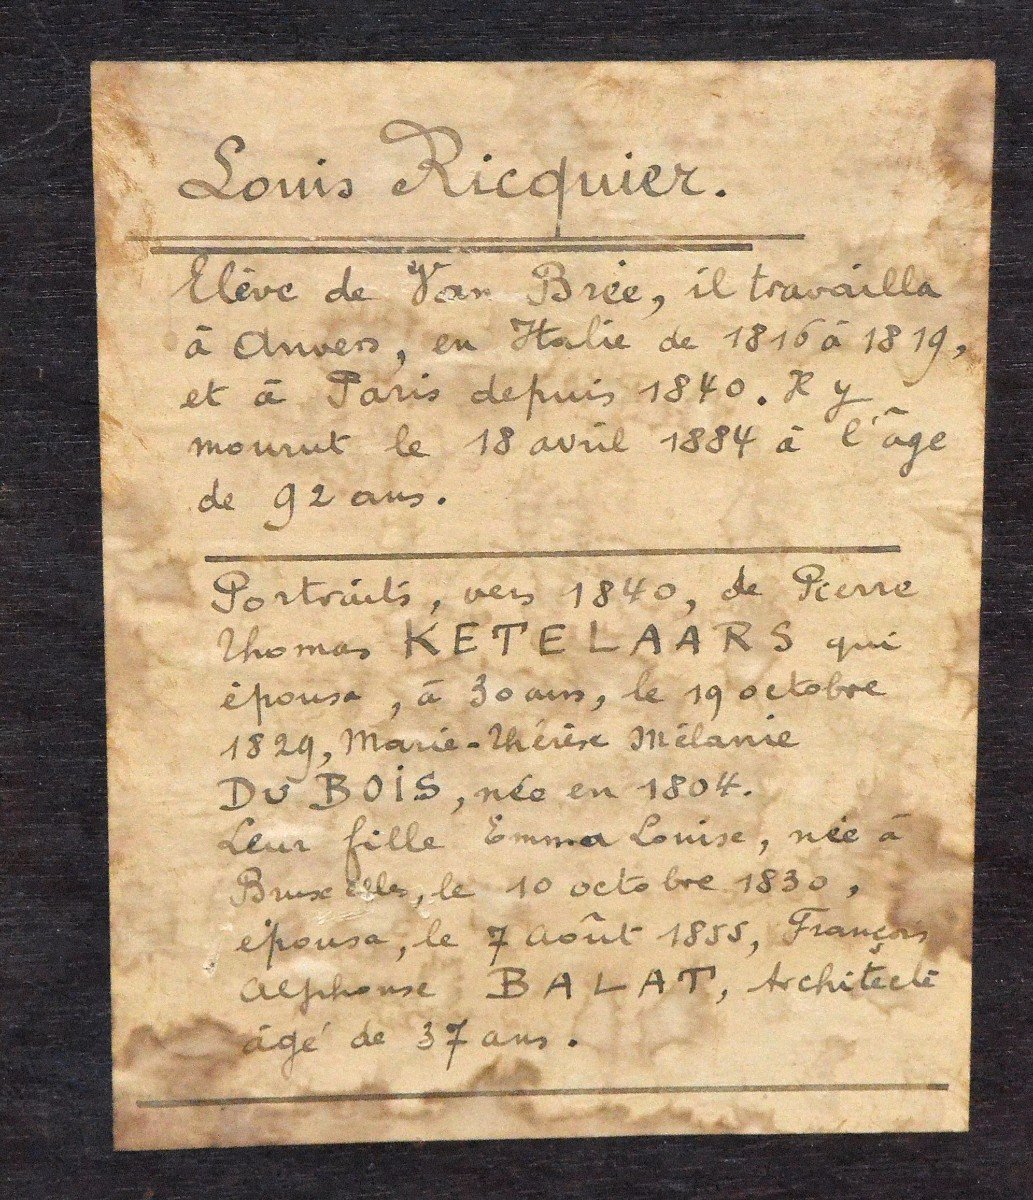 Louis Ricquier.
Elève de Van Brée, il travailla
à Anvers, en Italie de 1816 à 1819,
et à Paris depuis 1840. Il y
mourut le 18 avril 1884 à l'âge
de 92 ans.
Portraits, vers 1840, de Pierre
Thomas KETELAARS qui
épousa, à 30 ans, le 19 octobre
1829, Marie-Thérèse Mélanie
DU BOIS, née en 1804.
Leur fille Emma Louise, née à
Bruxelles, le 10 octobre 1830,
épousa, le 7 août 1855, François
Alphonse BALAT, Architecte
âgé de 37 ans.